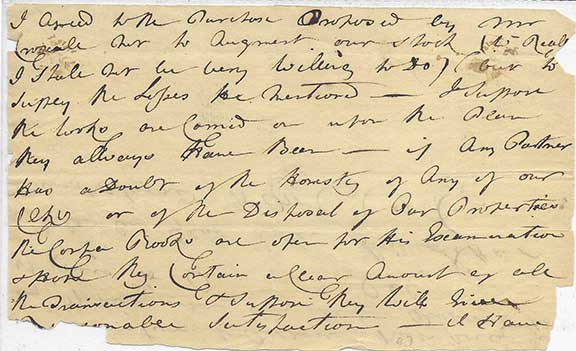 I Agreed to the Purchase Proposed by Mr
not to Augment our Stock (
I Shale not be very Willing to Do) but to
Suppey the Losses he mentiond — I Suppose
the Works are Carried on upon the Plan
they allways Have Been — if Any Partner
Has a Doubt of the Honisty of Any of our
or of the Disposal of Our Properties
the Books are open for His Examination
& hope they Contain a Clear Amount of all
the Transactions & I Suppose they Will Give
Satisfaction — I Have